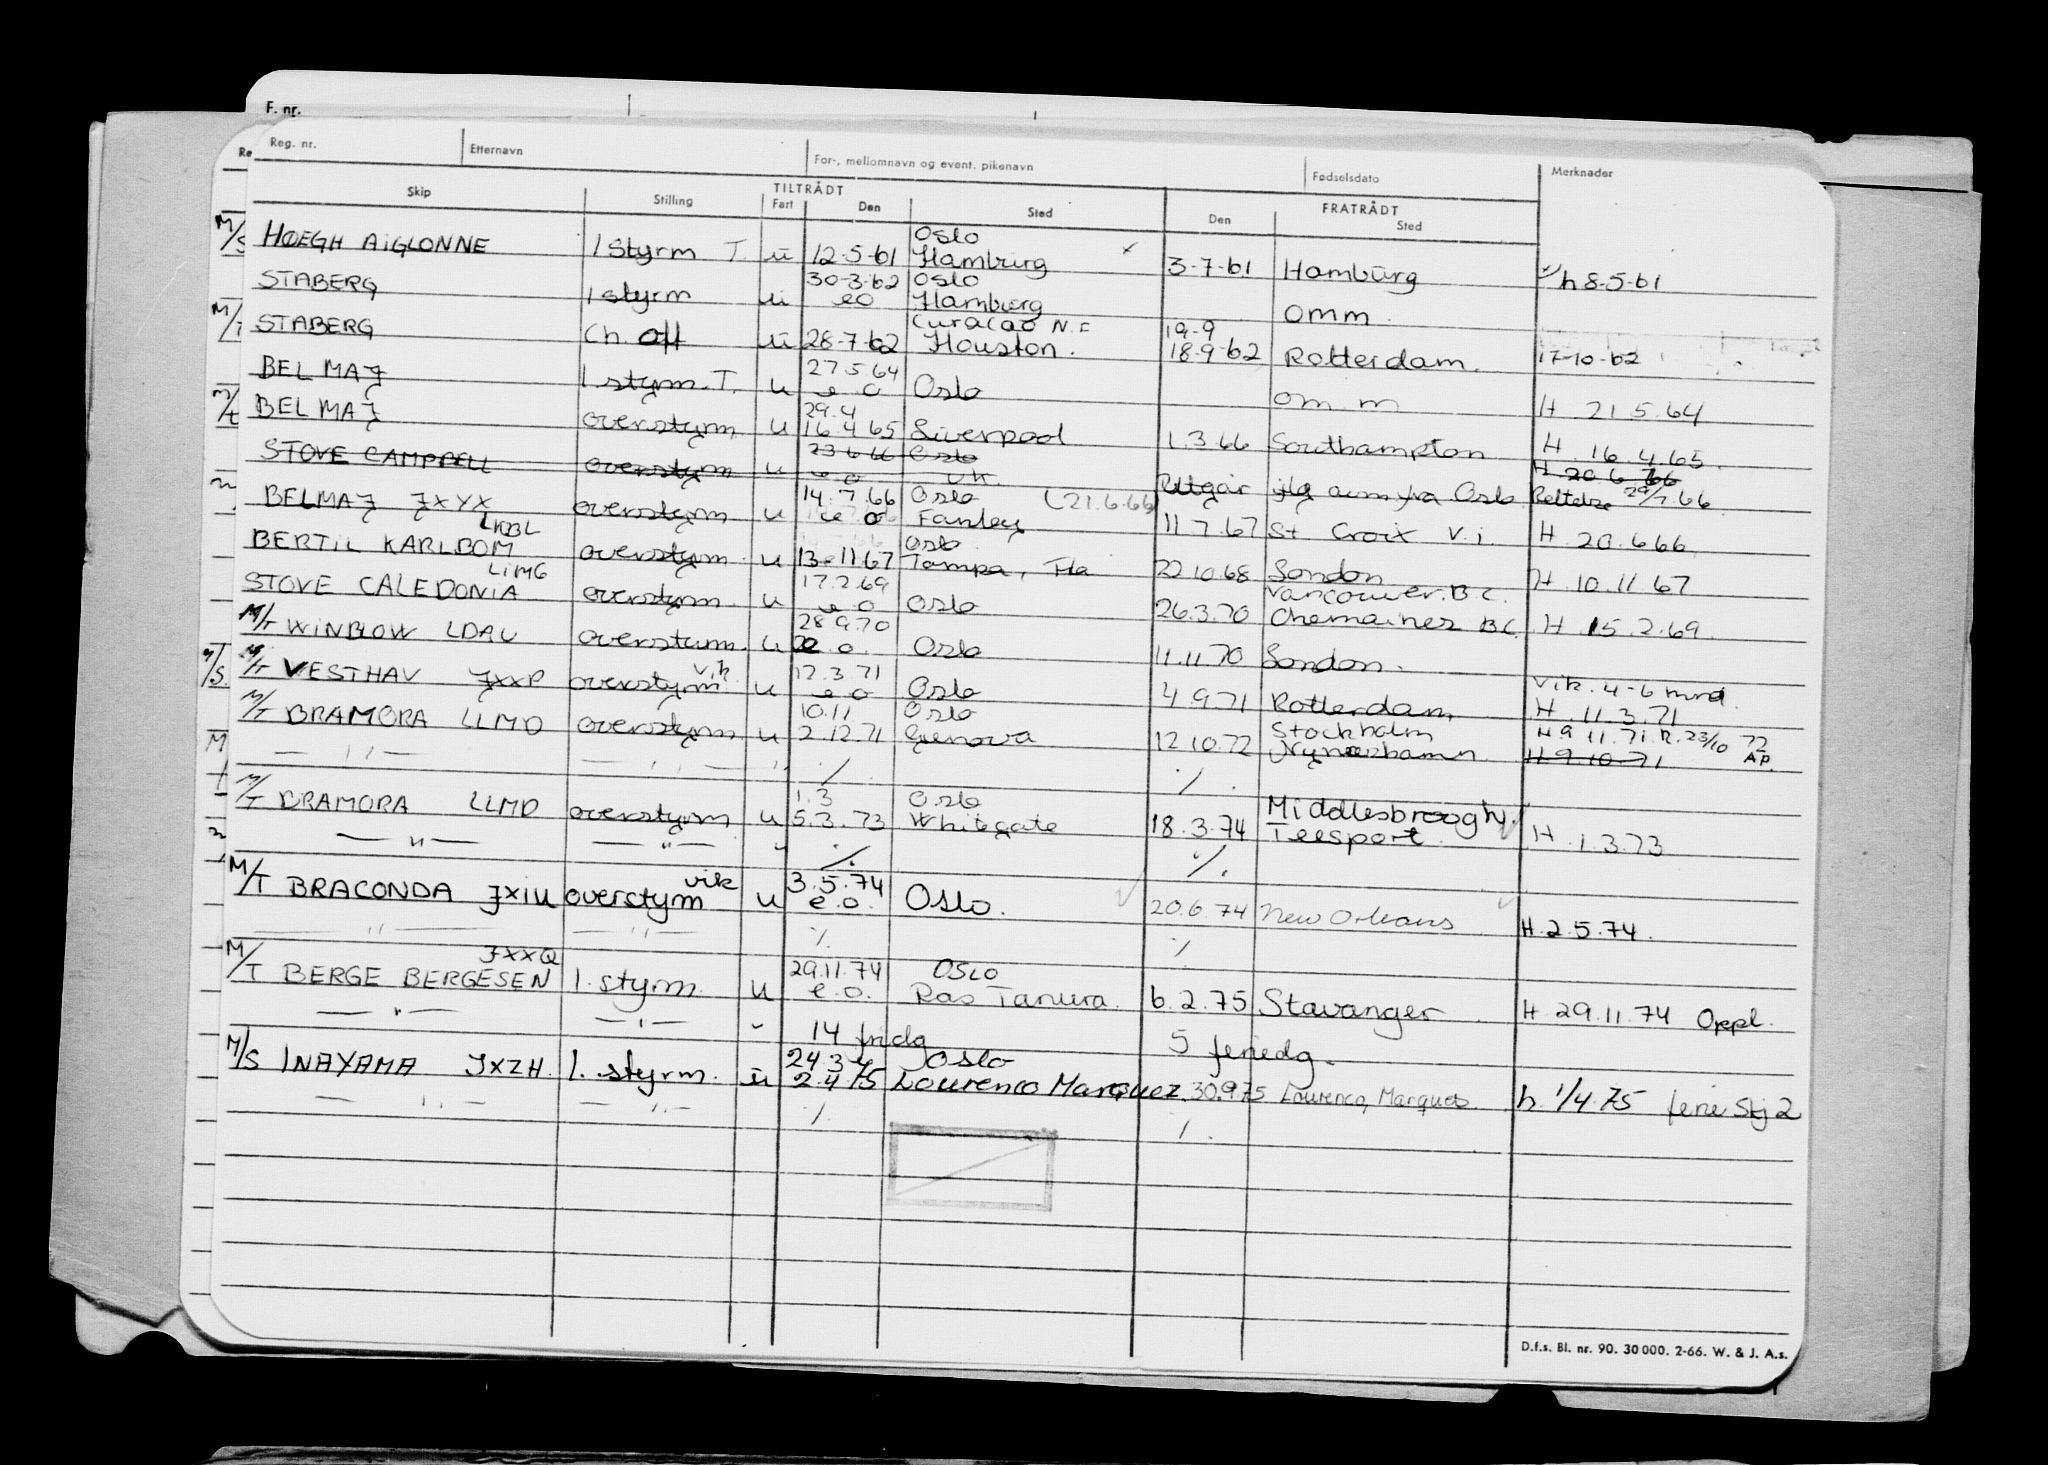 F. nr.
Reg. nr. Etternavn For-, mellomnavn og event. pikenavn Fødselsdato Merknader
TILTRÅDT FRATRÅDT
Skip Stilling Fart Den Sted Den Sted
Oslo
HOEGH AIGLONNE 1 styrm T. u 12-5-61 Hamburg x 3-7-61 Hamburg h 8-5-61
30-3-62 Oslo
STABERG 1 styrm u eo Hamburg omm
Curacao N.
STABERG Ch. off u 28-7-62 Houston. 19-9
18-9-62 Rotterdam. 17-10-62
27.5.64
BELMAJ 1 styrm. T. u e o Oslo om.m H 21.5.64
29.4
BELMAJ overstyrm u 16.4.65 Liverpool 1.3.66 Southampton H. 16.4.65.
23.6.66 Oslo H 20.6.66
STOVE CAMPBELL overstyrm u e o UK. Utgår iflg av Oslo Rettelse 29/7.66
14.7.66 Oslo (21.6.66)
BELMAJ JXYX overstyrm u e o Fawley 11.7.67 St. Croix V.i. H. 20.6.66
LKBL Oslo
BERTIL KARLBOM overstyrm. u 13-11.67 Tampa, Fla 22.10.68 London H. 10.11.67
LIMG 17.2.69 Vancouver. B.C.
STOVE CALEDONIA overstyrm. u e o Oslo 26.3.70 Chemaines BC. H. 15.2.69.
28.9.70
M/T WINBLOW LDAU overstyrm. u e.o. Oslo 11.11.70 London.
vik. 12.3.71 Vik. 4-6 mnd.
M/T VESTHAV JXXP overstyrm u e o Oslo 4.9.71 Rotterdam H. 11.3.71
10.11 Oslo Stockholm H 9.11.71. R. 23/10 72
M/T BRAMORA LLMD overstyrm u 2.12.71 Genova 12.10.72 Nynashamn. H 9.10.71 AP.
— " — — " — " ./. ./.
1.3 Oslo Middlesbrough/
M/T BRAMORA LLMD overstyrm u 5.3.73 Whitegate 18.3.74 Teesport. H. 1.3.73
— " — — " — " ./. ./.
vik 3.5.74
M/T BRACONDA JXIU overstyrm u e.o. Oslo. 20.6.74 New Orleans H. 2.5.74.
— " — — " — ./. ./.
JXXQ 29.11.74 OSLO
M/T BERGE BERGESEN 1. styrm. u e.o. Ras Tanura. 6.2.75 Stavanger H. 29.11.74 Oppl.
— " — — " — " 14 fridg 5 feriedg.
24.3 Oslo
M/S INAYAMA JXZH. 1. styrm. u 2.4.75 Lourenco Marquez 30.9.75 Lourenco, Marques h. 1/4.75 ferie Stj 2
— " — — " — ./. ./.
D.f.s. Bl. nr. 90. 30 000. 2-66. W. & J. A.s.